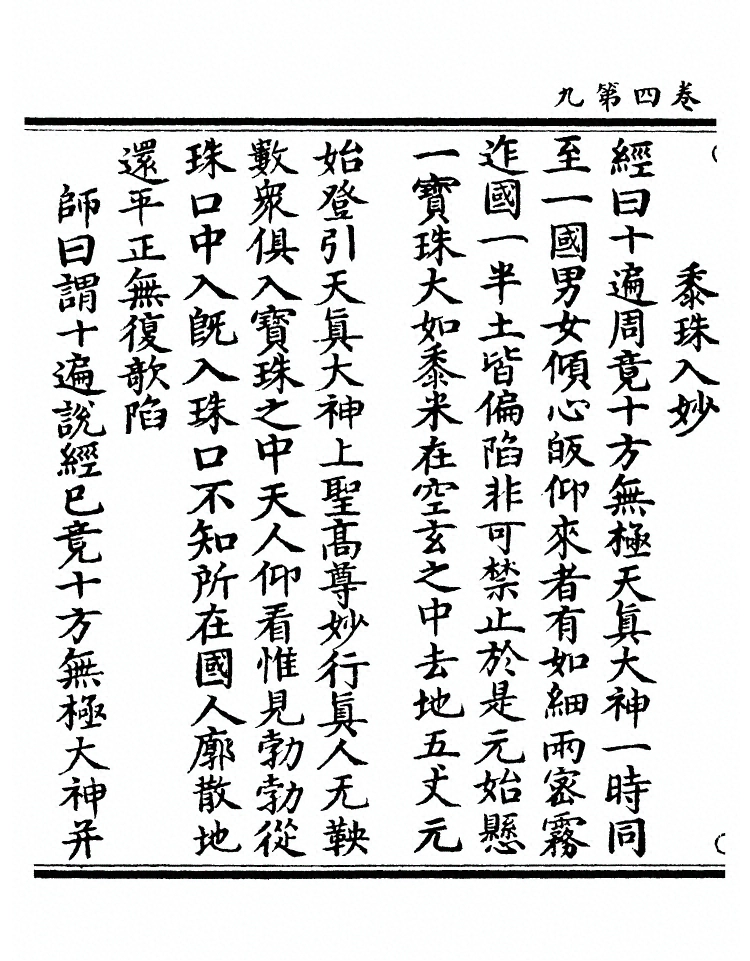 卷四第九
黍珠入妙
經曰十遍周竟十方無極天眞大神一時同
至一國男女傾心皈仰來者有如細雨密霧
迮國一半土皆偏陷非可禁止於是元始懸
一寶珠大如黍米在空玄之中去地五丈元
始登引天眞大神上聖髙尊妙行眞人无鞅
數衆俱入寶珠之中天人仰看惟見勃勃從
珠口中入旣入珠口不知所在國人廓散地
還平正無復欹陷
師曰謂十遍說經已竟十方無極大神并